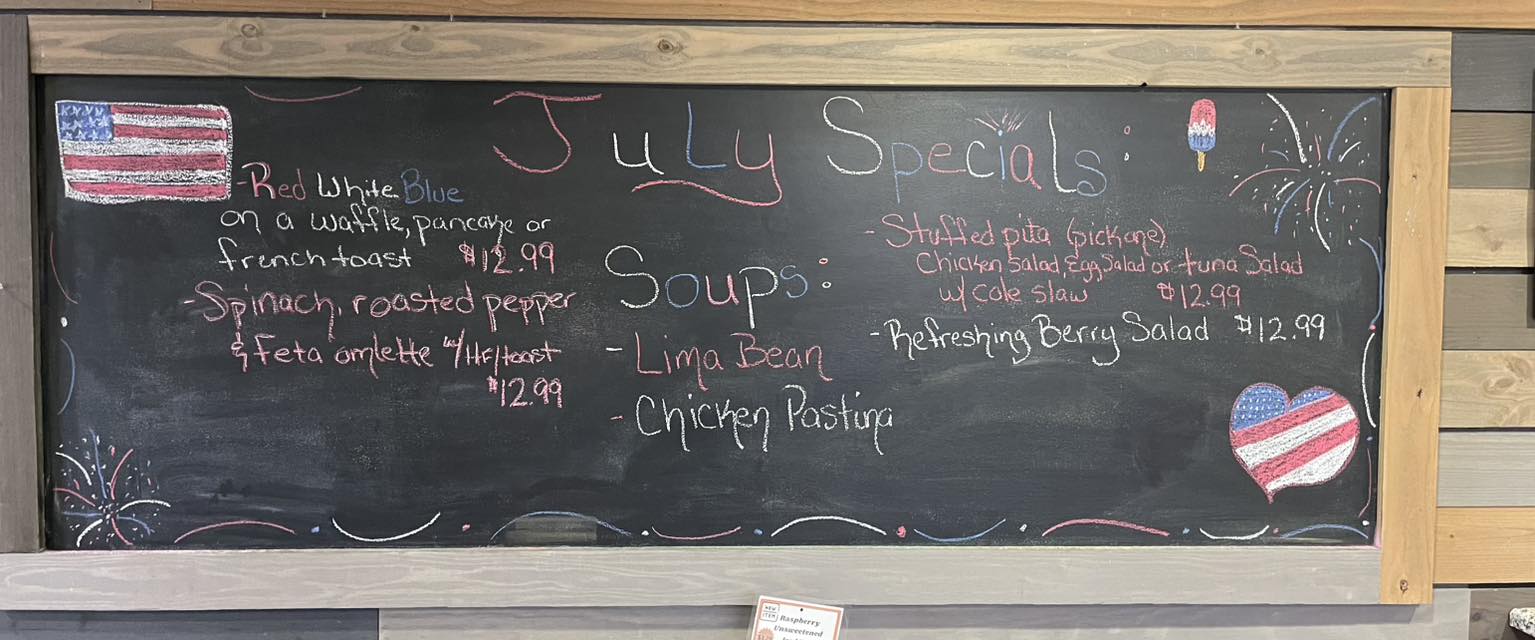 July Specials:
-Red White Blue
on a waffle, pancake or
french toast $12.99
-Spinach, roasted pepper
& Feta omlette w/ HF/toast
$12.99
Soups:
- Lima Bean
- Chicken Pastina
- Stuffed pita (pick one)
Chicken Salad, Egg Salad or tuna Salad
w/ Cole slaw $12.99
-Refreshing Berry Salad $12.99
NEW
ITEM
Raspberry
Unsweetened